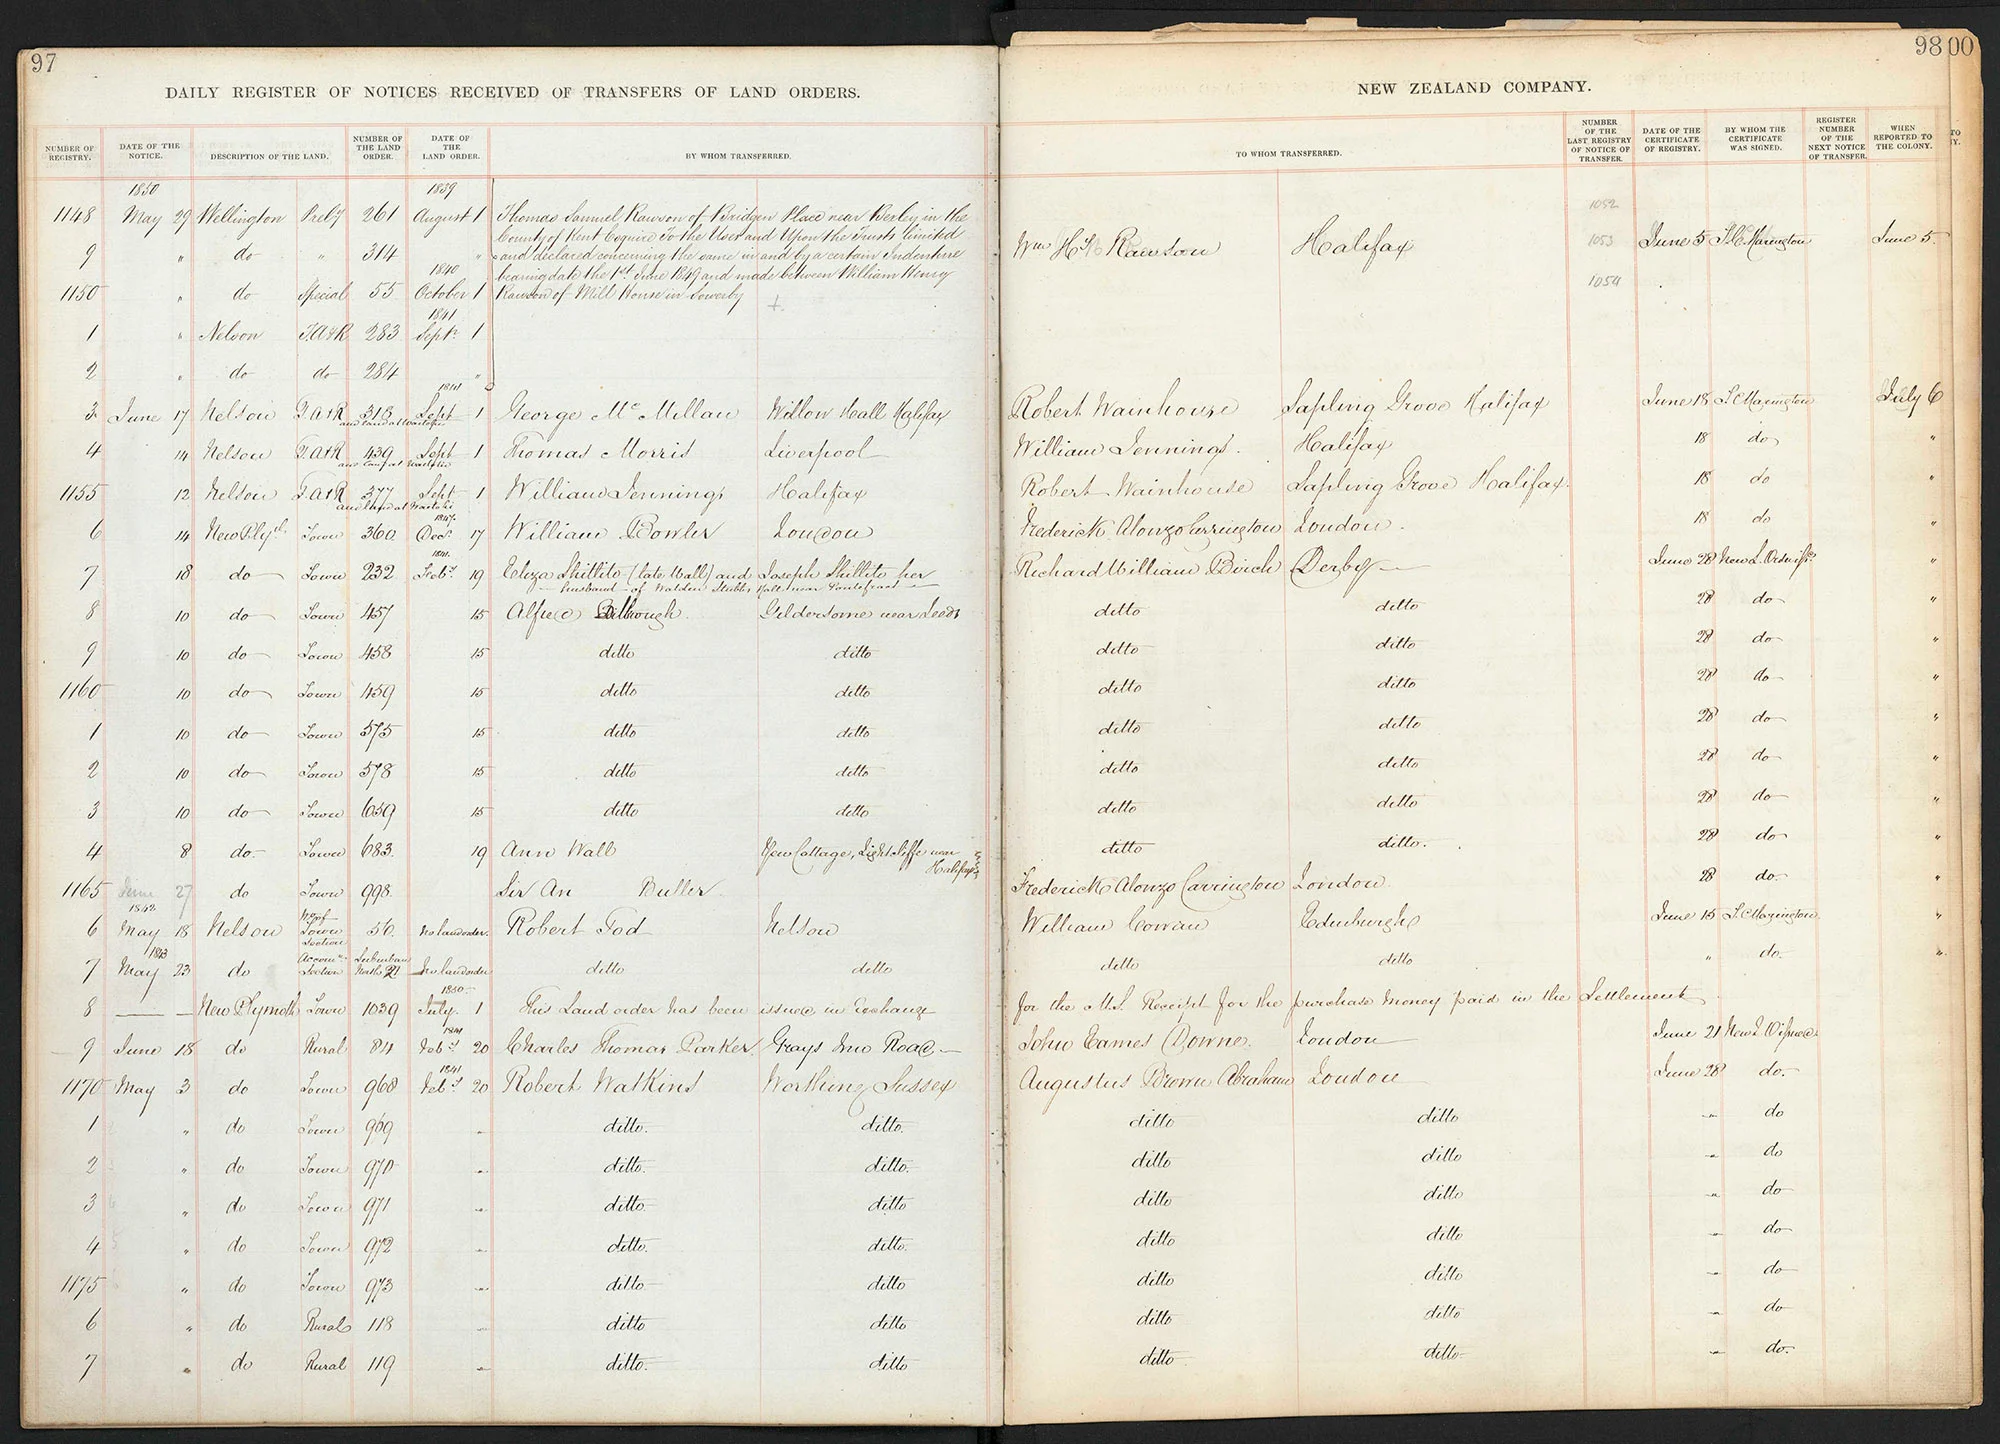 97
DAILY REGISTER OF NOTICES RECEIVED OF TRANSFERS OF LAND ORDERS.
NUMBER OF REGISTRY. DATE OF THE NOTICE. DESCRIPTION OF THE LAND. NUMBER OF THE LAND ORDER. DATE OF THE LAND ORDER. BY WHOM TRANSFERRED.
1850 1839
1148 May 29 Wellington 261 August 1 Thomas Samuel Rawson of Bridgen Place near Bexley in the
County of Kent Esquire To the Uses and Upon the Trusts limited
9 " do " 314 " and declared concerning the same in and by a certain Indenture
1840 bearing date the 1st June 1849 and made between William Henry
1150 " do Special 55 October 1 Rawson of Mill House in Sowerby +
1841
1 " Nelson T.A&R 283 Sept. 1
2 " do do 284 "
1841
3 June 17 Nelson T.A&R 318 Sept 1 George McMillan Willow Hall Halifax
and land at
4 14 Nelson T.A&R 439 Sept 1 Thomas Morris Liverpool
1155 12 Nelson T.A&R 377 Sept 1 William Jennings Halifax
and land at
6 14 New Plyth. Town 360 Decr. 17 William Bowler London
1841
7 18 do Town 232 Feby. 19 Eliza Shillito (late Wall) and Joseph Shillito her
husband of Walden Stubbs Hall near Pontefract
8 10 do Town 457 15 Alfred Gildersome near Leeds
9 10 do Town 458 15 ditto ditto
1160 10 do Town 459 15 ditto ditto
1 10 do Town 575 15 ditto ditto
2 10 do Town 578 15 ditto ditto
3 10 do Town 659 15 ditto ditto
4 8 do. Town 683. 19 Ann Wall Yew Cottage, Lightcliffe near
Halifax
1165 June 27 do Town 998. Sir An Buller
1842
6 May 18 Nelson Town Section 56. No land order. Robert Tod Nelson
1843
7 May 23 do Accomn. Section Suburban North 21 No land order ditto ditto
1850
8 New Plymoth Town 1039 July. 1 This Land order has been issued in Exchange
1841
9 June 18 do Rural 84 Feby. 20 Charles Thomas Parker. Grays Inn Road
1841
1170 May 3 do Town 968 Feby. 20 Robert Watkins Worthing Sussex
1 " do Town 969 " ditto. ditto.
2 " do Town 970 " ditto. ditto.
3 " do Town 971 " ditto. ditto
4 " do Town 972 " ditto. ditto.
1175 " do Town 973 " ditto. ditto
6 " do Rural 118 " ditto ditto
7 " do Rural 119 " ditto. ditto
98 00
NEW ZEALAND COMPANY.
TO WHOM TRANSFERRED. NUMBER OF THE LAST REGISTRY OF NOTICE OF TRANSFER. DATE OF THE CERTIFICATE OF REGISTRY. BY WHOM THE CERTIFICATE WAS SIGNED. REGISTER NUMBER OF THE NEXT NOTICE OF TRANSFER. WHEN REPORTED TO THE COLONY.
1052
Wm Hy Rawson Halifax 1053 June 5 June 5.
1054
Robert Wainhouse Sapling Grove Halifax June 18 July 6
William Jennings. Halifax 18 do "
Robert Wainhouse Sapling Grove Halifax. 18 do "
Frederick Alonzo Carrington London. 18 do "
Richard William Birch Derby June 28 "
ditto ditto 28 do "
ditto ditto 28 do "
ditto ditto 28 do "
ditto ditto 28 do "
ditto ditto 28 do "
ditto ditto 28 do "
ditto ditto. 28 do "
Frederick Alonzo Carrington London. 28 do. "
William Cowan Edinburgh June 15 "
ditto ditto " do. "
for the Receipt for the purchase money paid in the Settlement
John Eames Downe. London June 21
Augustus Brown Abraham London June 28 do.
ditto ditto " do
ditto ditto " do
ditto ditto " do
ditto ditto " do
ditto ditto " do
ditto ditto " do
ditto ditto " do.